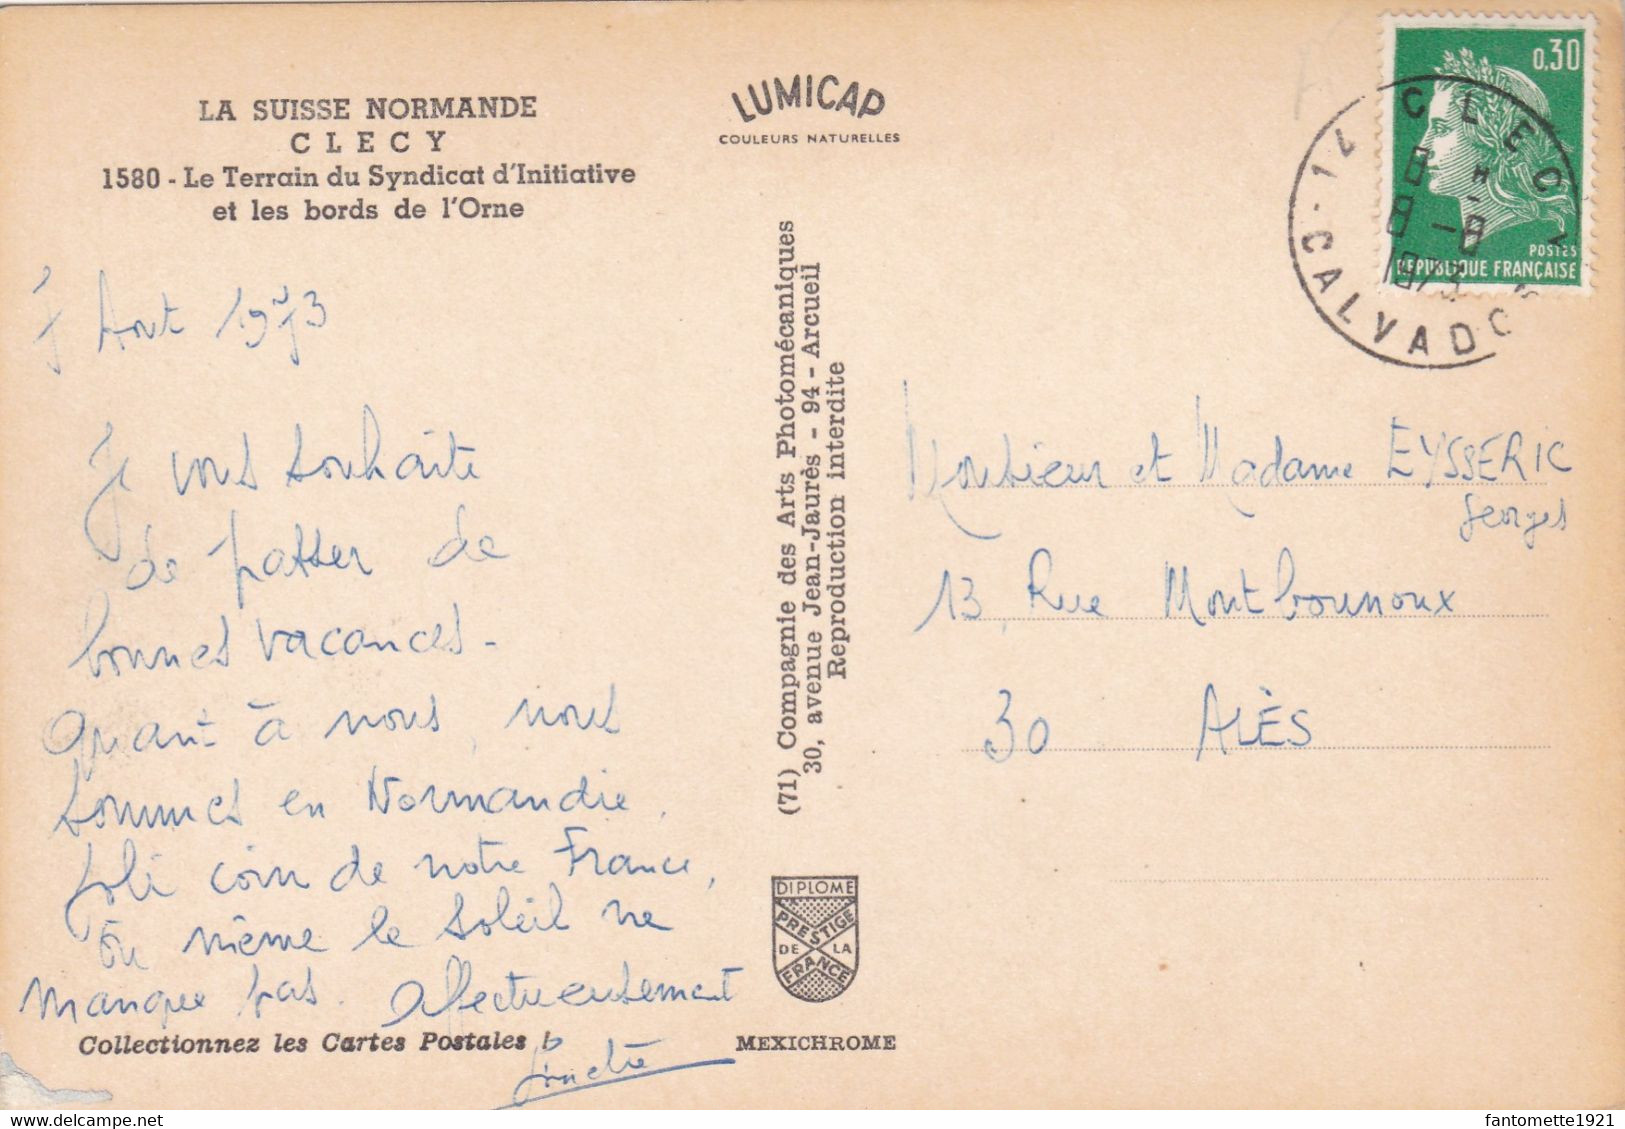 LA SUISSE NORMANDE
CLECY
1580 - Le Terrain du Syndicat d'Initiative
et les bords de l'Orne
7 Aout 1973
Je vous souhaite
de passer de
bonnes vacances -
Quant à nous, nous
sommes en Normandie.
Joli coin de notre France,
où même le soleil ne
manque pas. Affectueusement
Collectionnez les Cartes Postales !
LUMICAP
COULEURS NATURELLES
(71) Compagnie des Arts Photomécaniques
30, avenue Jean-Jaurès - 94 - Arcueil
Reproduction interdite
DIPLOME
PRESTIGE
DE LA
FRANCE
MEXICHROME
0,30
POSTES
REPUBLIQUE FRANÇAISE
14 - CLECY
8 H
8 - 8
1973
CALVADOS
Monsieur et Madame EYSSERIC
Georges
13, Rue Montbounoux
30 ALÈS
fantomette1921